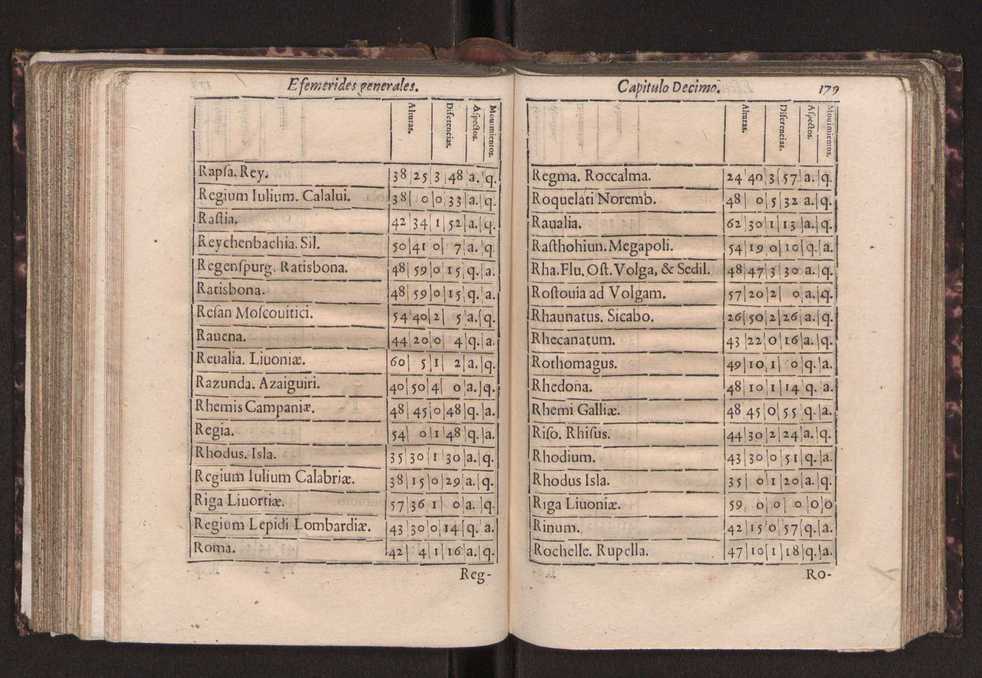 Efemerides generales.
Alturas.
Diferencias.
Aspectos.
Mouimientos.
Rapſa. Rey. 38 25 3 48 a. q.
Regium Iulium. Calalui. 38 0 0 33 a. q.
Raſtia. 42 34 1 52 a. q.
Reychenbachia. Sil. 50 41 0 7 a. q.
Regenſpurg. Ratisbona. 48 59 0 15 q. a.
Ratisbona. 48 59 0 15 q. a.
Reſan Moſcouitici. 54 40 2 5 a. q.
Rauena. 44 20 0 4 q. a.
Reualia. Liuoniæ. 60 5 1 2 a. q.
Razunda. Azaiguiri. 40 50 4 0 a. q.
Rhemis Campaniæ. 48 45 0 48 q. a.
Regia. 54 0 1 48 q. a.
Rhodus. Isla. 35 30 1 30 a. q.
Regium Iulium Calabriæ. 38 15 0 29 a. q.
Riga Liuortiæ. 57 36 1 0 a. q.
Regium Lepidi Lombardiæ. 43 30 0 14 q. a.
Roma. 42 4 1 16 a. q.
Reg-
Capitulo Decimo. 179
Alturas.
Diferencias.
Aſpectos.
Mouimientos.
Regma. Roccalma. 24 40 3 57 a. q.
Roquelati Noremb. 48 0 5 32 a. q.
Raualia. 62 30 1 13 a. q.
Raſthohiun. Megapoli. 54 19 0 10 q. a.
Rha. Flu. Oſt. Volga, & Sedil. 48 47 3 30 a. q.
Roſtouia ad Volgam. 57 20 2 0 a. q.
Rhaunatus. Sicabo. 26 50 2 26 a. q.
Rhecanatum. 43 22 0 16 a. q.
Rothomagus. 49 10 1 0 q. a.
Rhedona. 48 10 1 14 q. a.
Rhemi Galliæ. 48 45 0 55 q. a.
Riſo. Rhiſus. 44 30 2 24 a. q.
Rhodium. 43 30 0 51 q. a.
Rhodus Isla. 35 0 1 20 a. q.
Riga Liuoniæ. 59 0 0 0 0 0
Rinum. 42 15 0 57 q. a.
Rochelle. Rupella. 47 10 1 18 q. a.
Ro-